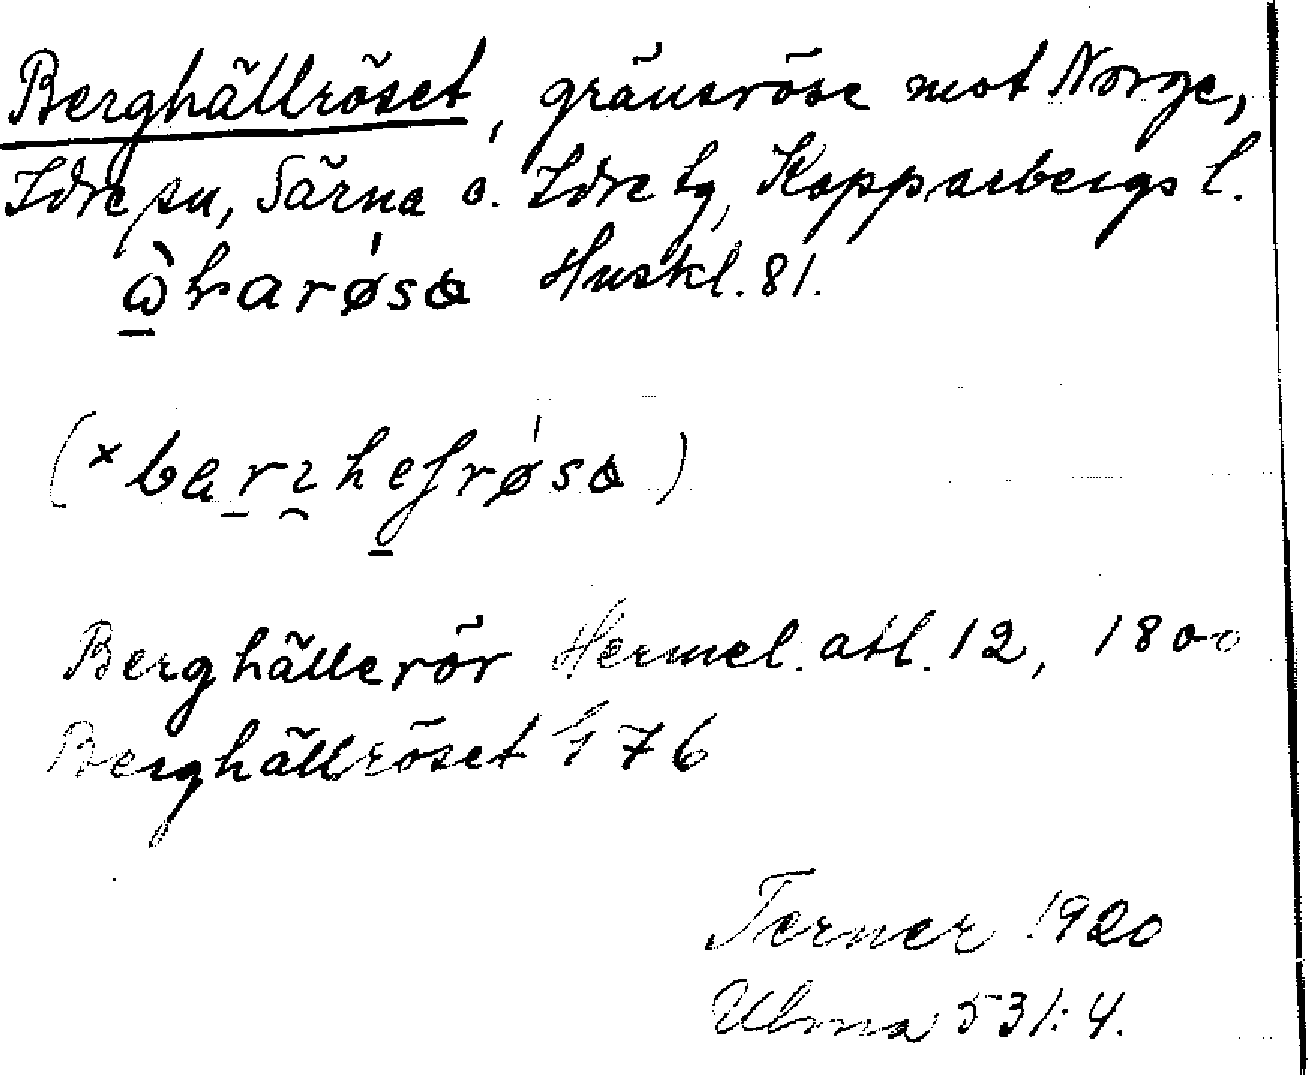 Berghällröset, gränsröse mot Norge,
Idre sn, Särna o. Idre tg, Kopparbergs l.
Huskl. 81.
Berghällerör Hermel. atl. 12, 1800
Berghällröset 176
Terner 1920
Ulma 531:4.